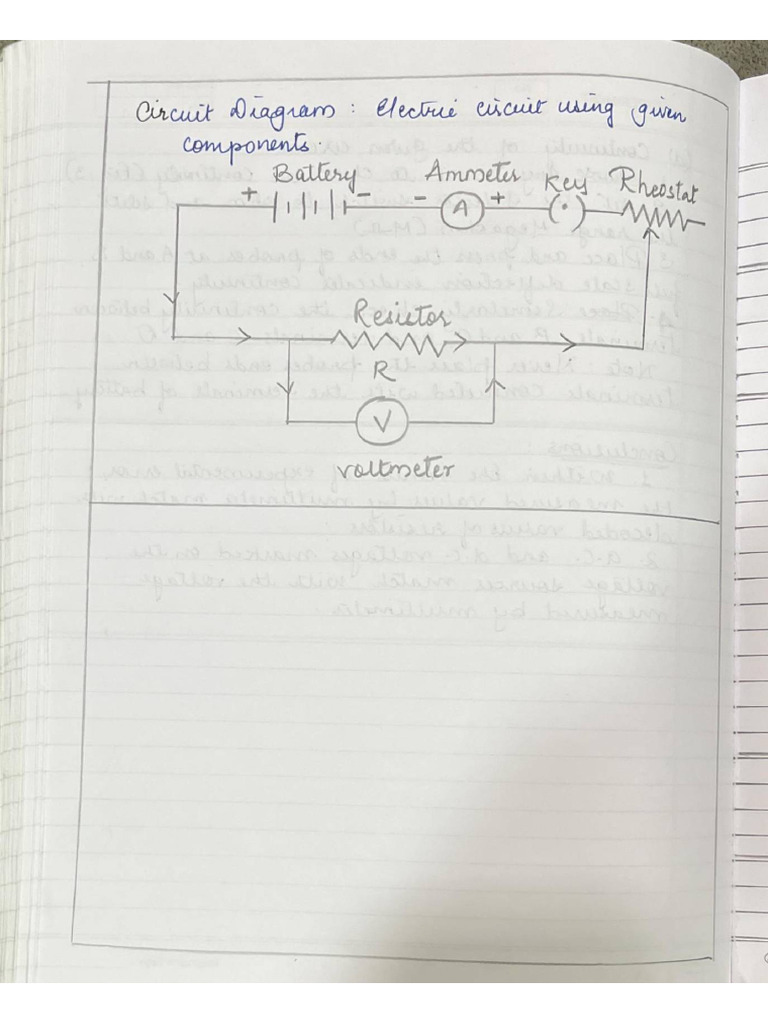 Circuit Diagram : Electric circuit using given
components.
+ Battery - - Ammeter + Key Rheostat
A (·)
Resistor
R
V
voltmeter